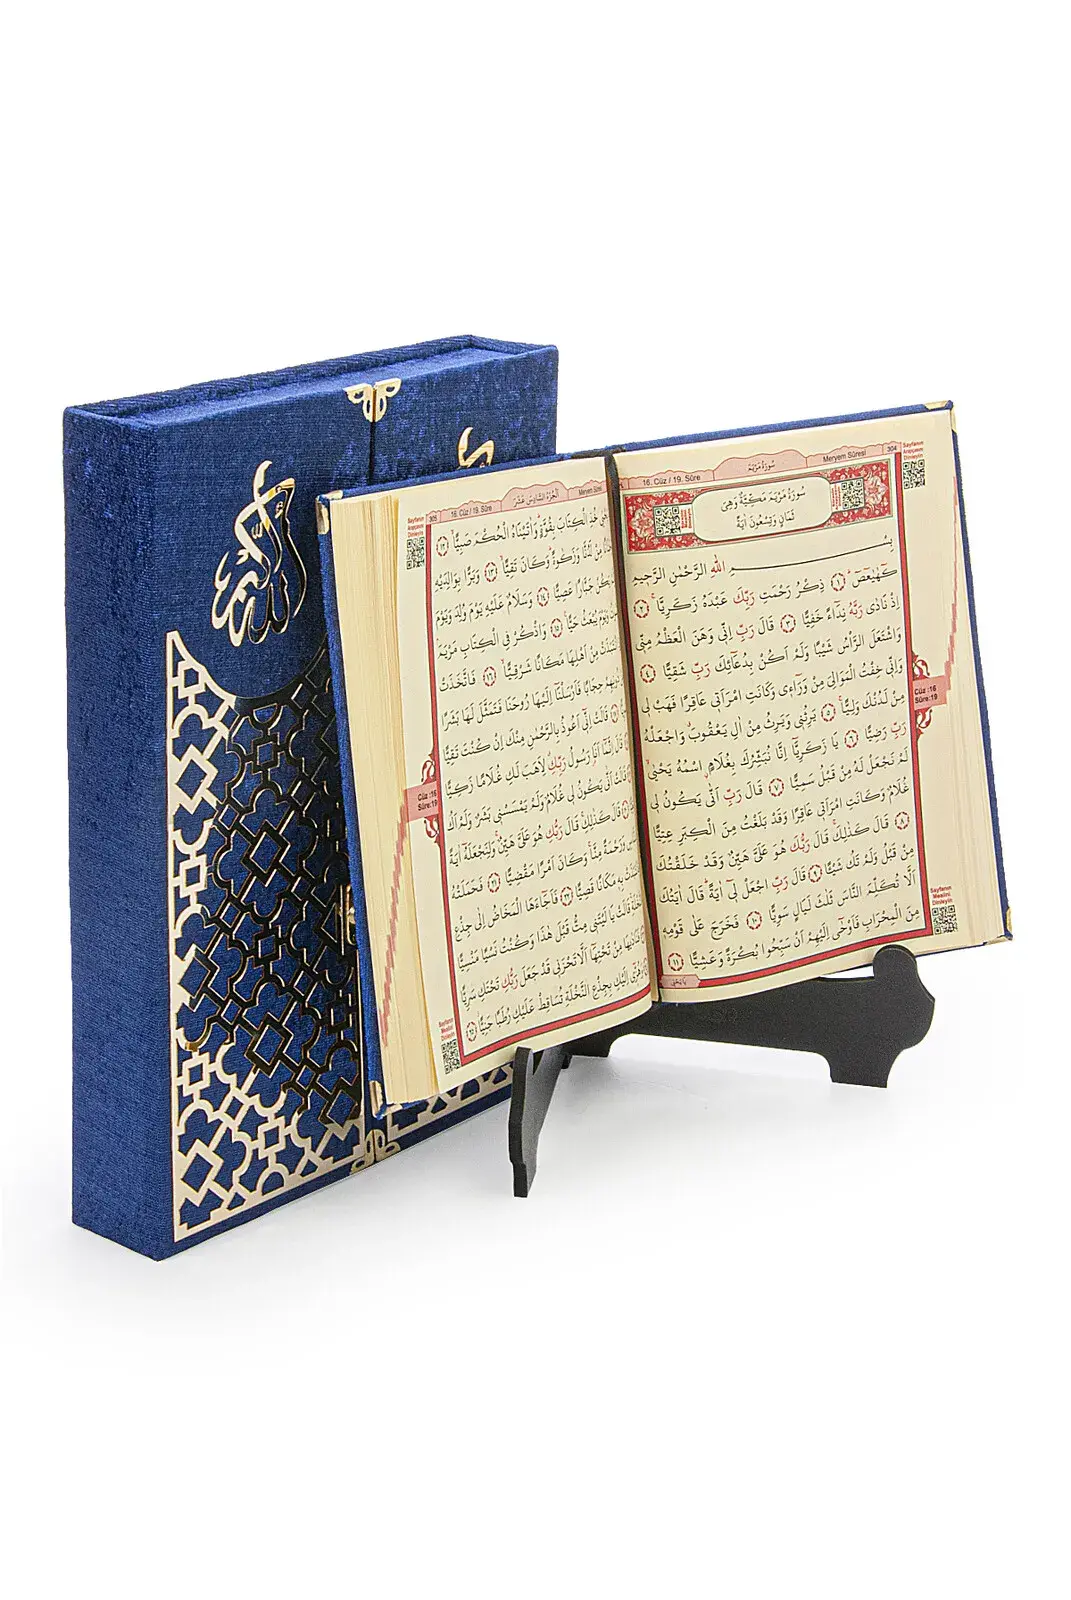 304
Meryem Sûresi
سُورَةُ مَرْيَمَ
16. Cüz / 19. Sûre
Sayfanın
Arapçasını
Dinleyin
سُورَةُ مَرْيَمَ مَكِّيَّةٌ وَهِيَ
ثَمَانٍ وَتِسْعُونَ اٰيَةً
بِسْــــــمِ اللّٰهِ الرَّحْمٰنِ الرَّحِيمِ
كٓهٰيٰعٓصٓ ﴿١﴾ ذِكْرُ رَحْمَتِ رَبِّكَ عَبْدَهُ زَكَرِيَّا ﴿٢﴾
اِذْ نَادٰى رَبَّهُ نِدَٓاءً خَفِيًّا ﴿٣﴾ قَالَ رَبِّ اِنّ۪ي وَهَنَ الْعَظْمُ مِنّ۪ي
وَاشْتَعَلَ الرَّأْسُ شَيْبًا وَلَمْ اَكُنْ بِدُعَٓائِكَ رَبِّ شَقِيًّا ﴿٤﴾
وَاِنّ۪ي خِفْتُ الْمَوَالِيَ مِنْ وَرَٓاء۪ي وَكَانَتِ امْرَاَت۪ي عَاقِرًا فَهَبْ ل۪ي
مِنْ لَدُنْكَ وَلِيًّا ﴿٥﴾ يَرِثُن۪ي وَيَرِثُ مِنْ اٰلِ يَعْقُوبَ وَاجْعَلْهُ
رَبِّ رَضِيًّا ﴿٦﴾ يَا زَكَرِيَّٓا اِنَّا نُبَشِّرُكَ بِغُلَامٍ اسْمُهُ يَحْيٰى
لَمْ نَجْعَلْ لَهُ مِنْ قَبْلُ سَمِيًّا ﴿٧﴾ قَالَ رَبِّ اَنّٰى يَكُونُ ل۪ي
غُلَامٌ وَكَانَتِ امْرَاَت۪ي عَاقِرًا وَقَدْ بَلَغْتُ مِنَ الْكِبَرِ عِتِيًّا ﴿٨﴾
قَالَ كَذٰلِكَ قَالَ رَبُّكَ هُوَ عَلَيَّ هَيِّنٌ وَقَدْ خَلَقْتُكَ
مِنْ قَبْلُ وَلَمْ تَكُ شَيْـًٔا ﴿٩﴾ قَالَ رَبِّ اجْعَلْ ل۪ٓي اٰيَةً قَالَ اٰيَتُكَ
اَلَّا تُكَلِّمَ النَّاسَ ثَلٰثَ لَيَالٍ سَوِيًّا ﴿١٠﴾ فَخَرَجَ عَلٰى قَوْمِه۪
مِنَ الْمِحْرَابِ فَاَوْحٰٓى اِلَيْهِمْ اَنْ سَبِّحُوا بُكْرَةً وَعَشِيًّا ﴿١١﴾
يَا يَحْيٰى
Cüz :16
Sûre:19
Sayfanın
Mealini
Dinleyin
305
16. Cüz / 19. Sûre
اَلْجُزْءُ السَّادِسَ عَشَرَ
Meryem Sûresi
Sayfanın
Arapçasını
Dinleyin
خُذِ الْكِتَابَ بِقُوَّةٍ وَاٰتَيْنَاهُ الْحُكْمَ صَبِيًّا ﴿١٢﴾
مِنْ لَدُنَّا وَزَكٰوةً وَكَانَ تَقِيًّا ﴿١٣﴾ وَبَرًّا بِوَالِدَيْهِ
يَكُنْ جَبَّارًا عَصِيًّا ﴿١٤﴾ وَسَلَامٌ عَلَيْهِ يَوْمَ وُلِدَ وَيَوْمَ
وَيَوْمَ يُبْعَثُ حَيًّا ﴿١٥﴾ وَاذْكُرْ فِي الْكِتَابِ مَرْيَمَ
انْتَبَذَتْ مِنْ اَهْلِهَا مَكَانًا شَرْقِيًّا ﴿١٦﴾ فَاتَّخَذَتْ
حِجَابًا فَاَرْسَلْنَٓا اِلَيْهَا رُوحَنَا فَتَمَثَّلَ لَهَا بَشَرًا
قَالَتْ اِنّ۪ٓي اَعُوذُ بِالرَّحْمٰنِ مِنْكَ اِنْ كُنْتَ تَقِيًّا
قَالَ اِنَّمَٓا اَنَا۬ رَسُولُ رَبِّكِ لِاَهَبَ لَكِ غُلَامًا زَكِيًّا
قَالَتْ اَنّٰى يَكُونُ ل۪ي غُلَامٌ وَلَمْ يَمْسَسْن۪ي بَشَرٌ وَلَمْ اَكُ
قَالَ كَذٰلِكِ قَالَ رَبُّكِ هُوَ عَلَيَّ هَيِّنٌ وَلِنَجْعَلَهُٓ اٰيَةً
وَرَحْمَةً مِنَّا وَكَانَ اَمْرًا مَقْضِيًّا ﴿٢١﴾ فَحَمَلَتْهُ
بِه۪ مَكَانًا قَصِيًّا ﴿٢٢﴾ فَاَجَٓاءَهَا الْمَخَاضُ اِلٰى جِذْعِ
قَالَتْ يَا لَيْتَن۪ي مِتُّ قَبْلَ هٰذَا وَكُنْتُ نَسْيًا مَنْسِيًّا
مِنْ تَحْتِهَٓا اَلَّا تَحْزَن۪ي قَدْ جَعَلَ رَبُّكِ تَحْتَكِ سَرِيًّا
اِلَيْكِ بِجِذْعِ النَّخْلَةِ تُسَاقِطْ عَلَيْكِ رُطَبًا جَنِيًّا ﴿٢٥﴾
Cüz :16
Sûre:19
Sayfanın
Mealini
Dinleyin